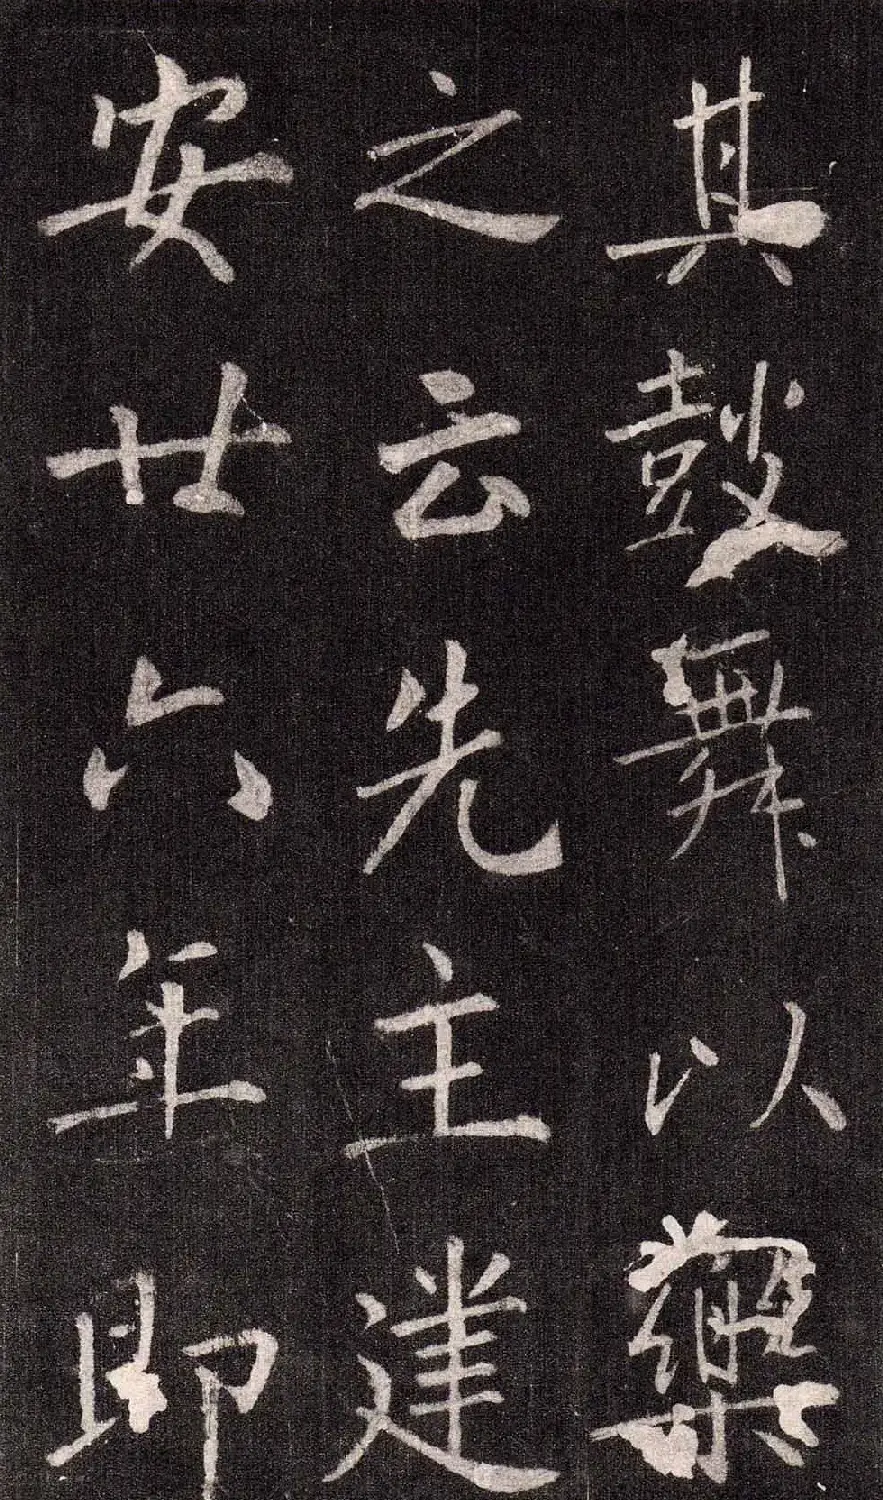 其鼓舞以樂
之云先主建
安廿六年即